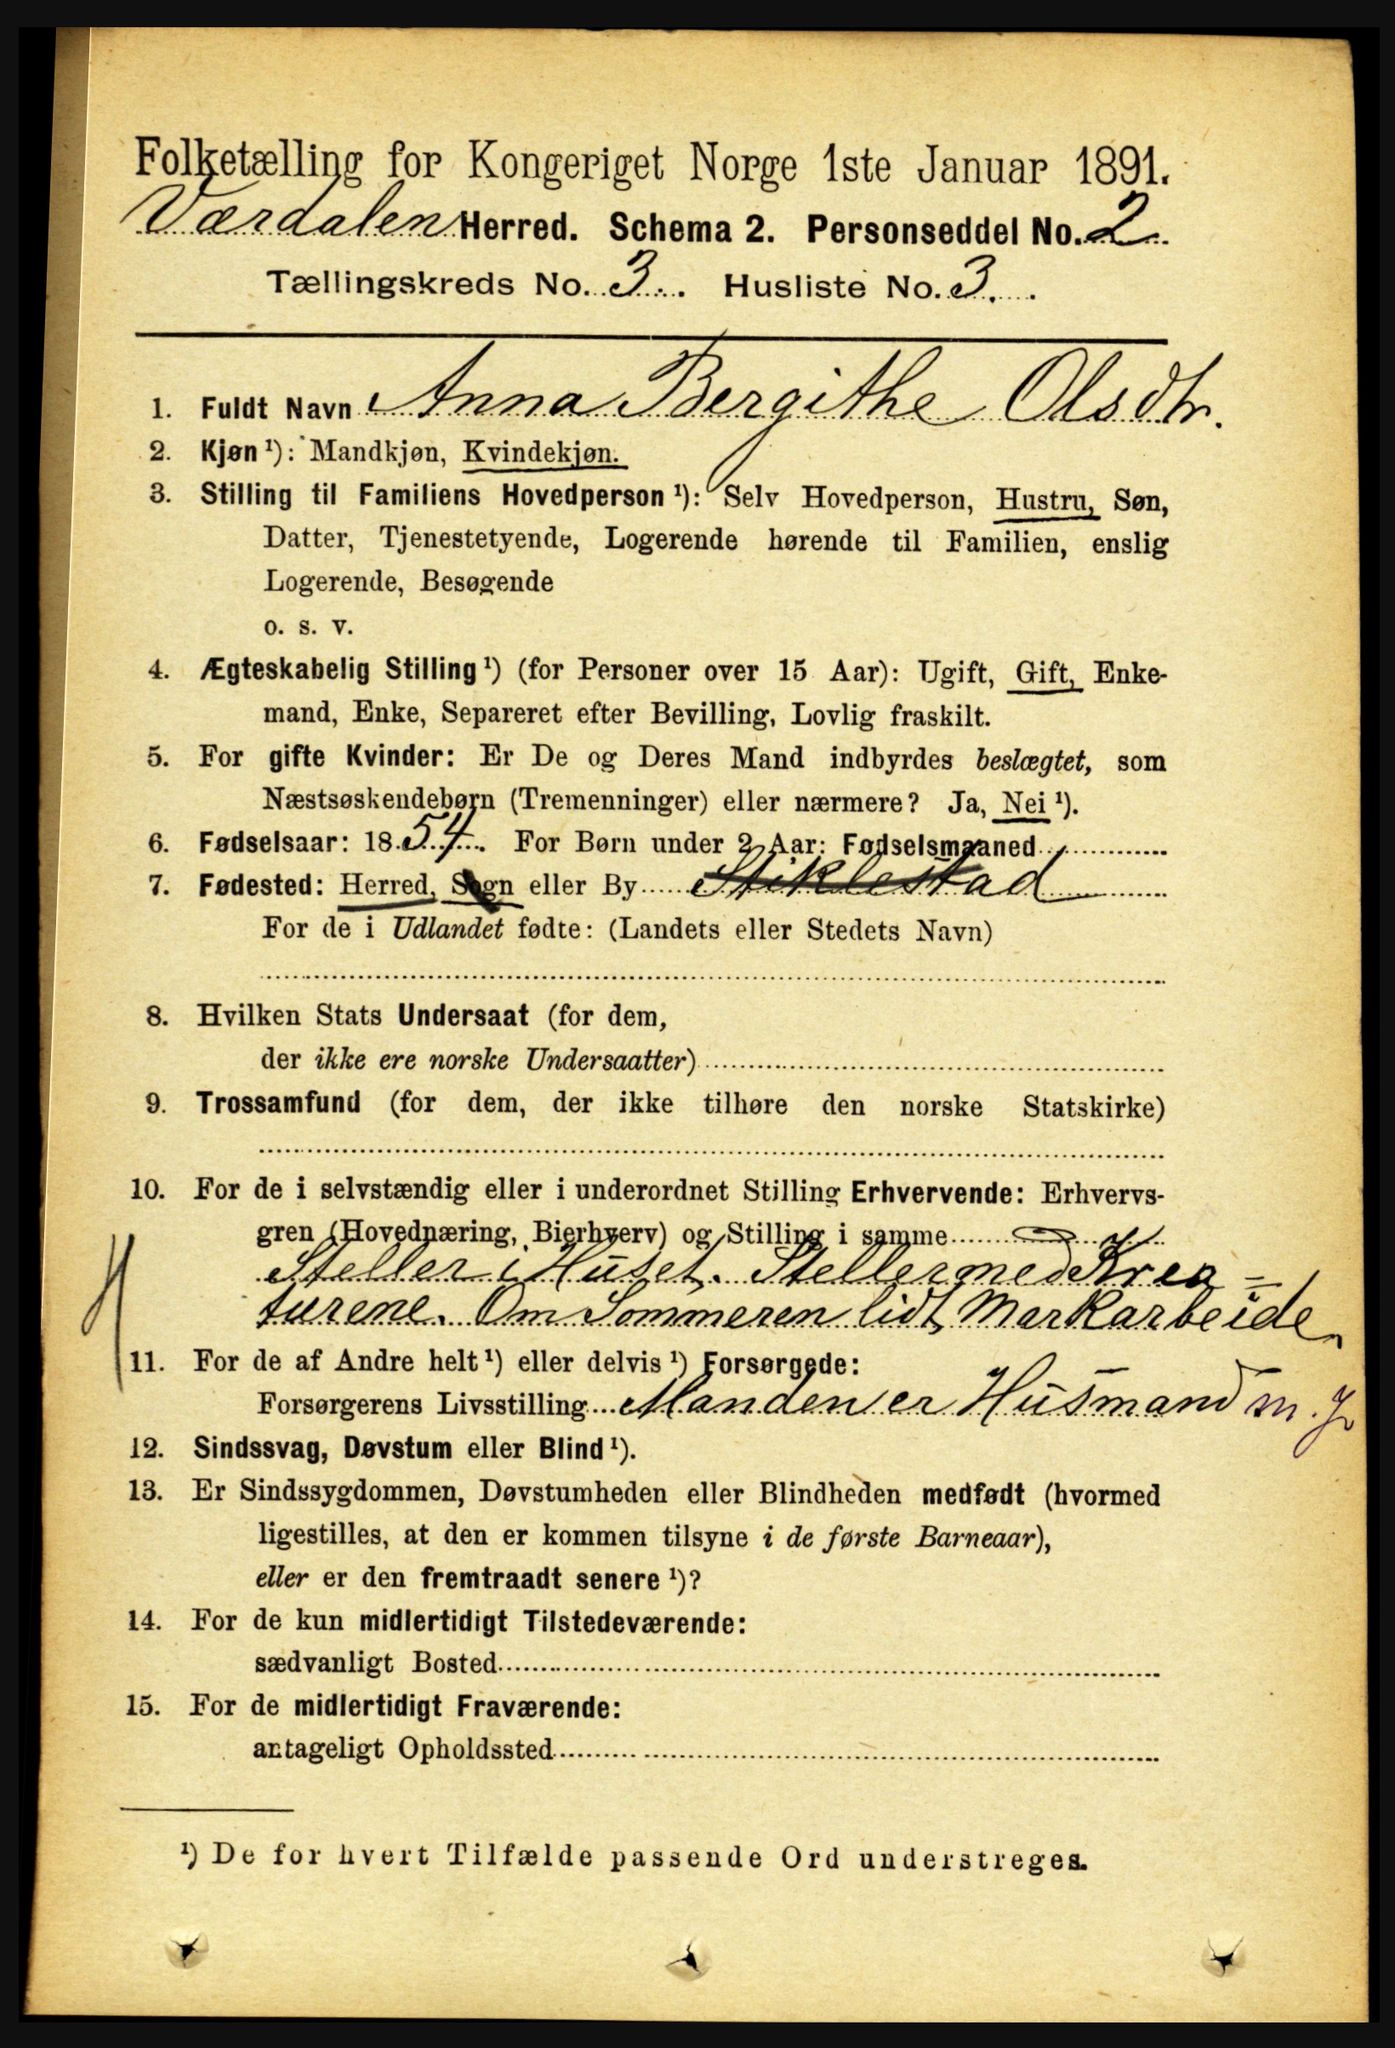 Folketælling for Kongeriget Norge 1ste Januar 1891.
Værdalen Herred. Schema 2. Personseddel No. 2
Tællingskreds No. 3. Husliste No. 3.
1. Fuldt Navn Anna Bergithe Olsdtr.
2. Kjøn ¹): Mandkjøn, Kvindekjøn.
3. Stilling til Familiens Hovedperson ¹): Selv Hovedperson, Hustru, Søn,
Datter, Tjenestetyende, Logerende hørende til Familien, enslig
Logerende, Besøgende
o. s. v.
4. Ægteskabelig Stilling ¹) (for Personer over 15 Aar): Ugift, Gift, Enke-
mand, Enke, Separeret efter Bevilling, Lovlig fraskilt.
5. For gifte Kvinder: Er De og Deres Mand indbyrdes beslægtet, som
Næstsøskendebørn (Tremenninger) eller nærmere? Ja, Nei ¹).
6. Fødselsaar: 1854. For Børn under 2 Aar: Fødselsmaaned
7. Fødested: Herred, Sogn eller By Stiklestad
For de i Udlandet fødte: (Landets eller Stedets Navn)
8. Hvilken Stats Undersaat (for dem,
der ikke ere norske Undersaatter)
9. Trossamfund (for dem, der ikke tilhøre den norske Statskirke)
10. For de i selvstændig eller i underordnet Stilling Erhvervende: Erhvervs-
gren (Hovednæring, Bierhverv) og Stilling i samme
Steller i Huset. Steller med Krea=
turene. Om Sommeren lidt Markarbeide
11. For de af Andre helt ¹) eller delvis ¹) Forsørgede:
Forsørgerens Livsstilling Manden er Husmand m. J
12. Sindssvag, Døvstum eller Blind ¹).
13. Er Sindssygdommen, Døvstumheden eller Blindheden medfødt (hvormed
ligestilles, at den er kommen tilsyne i de første Barneaar),
eller er den fremtraadt senere ¹)?
14. For de kun midlertidigt Tilstedeværende:
sædvanligt Bosted
15. For de midlertidigt Fraværende:
antageligt Opholdssted
¹) De for hvert Tilfælde passende Ord understreges.